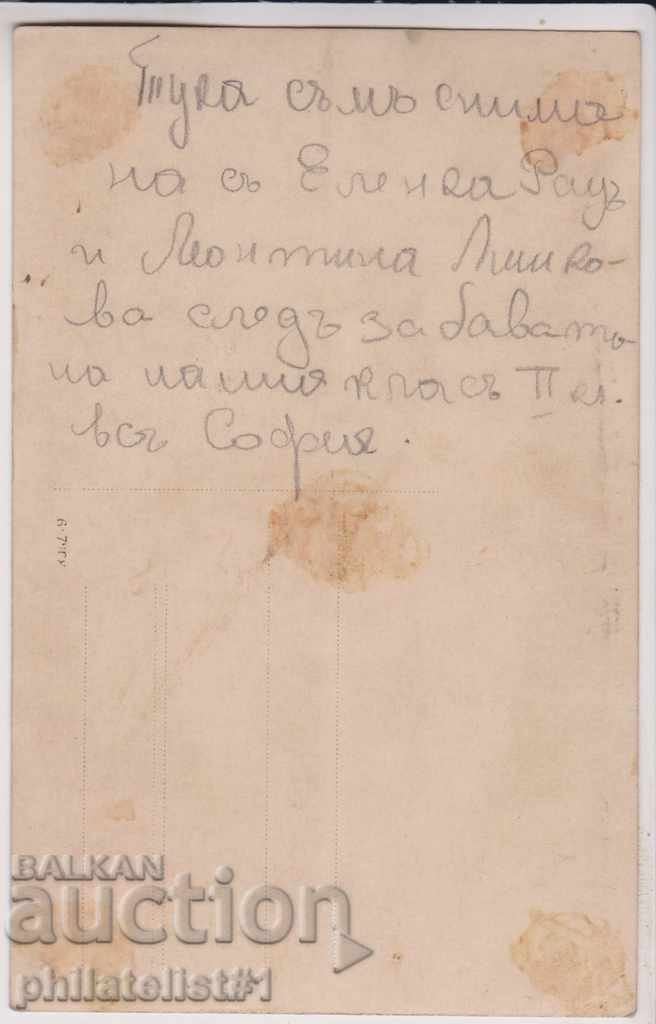 Тука съмъ снима
на съ Еленка Рацъ
и Леонтина Минко-
ва следъ забавата
на нашия класъ II кл.
въ София.
BALKAN
auction
philatelist#1